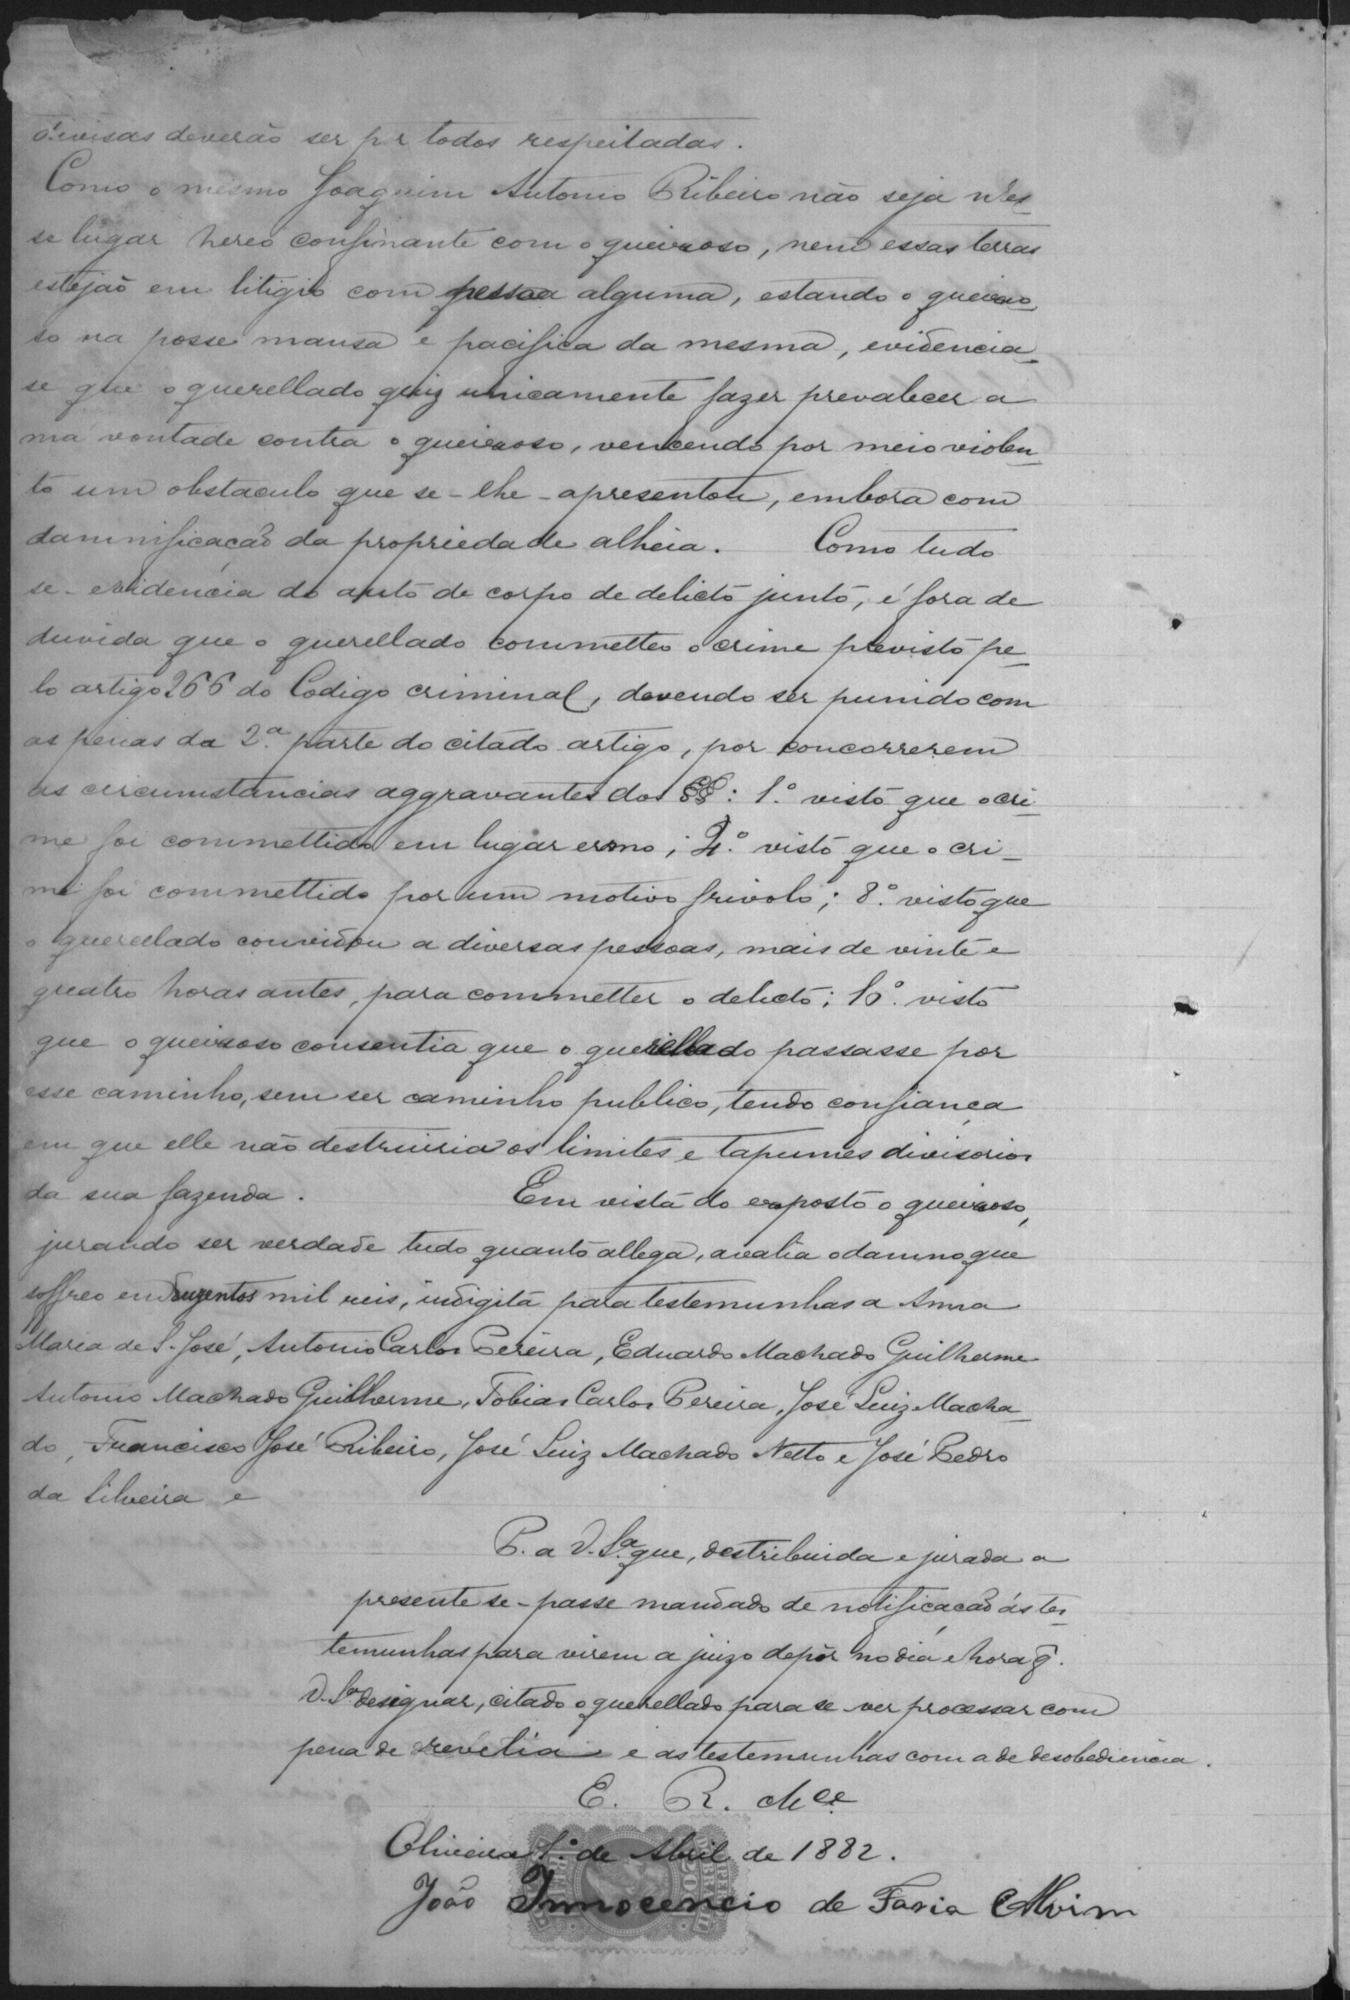 divisas deverão ser por todos respeitadas.
Como o mesmo Joaquim Antonio Ribeiro não seja n'es-
se lugar hereo confinante com o queixoso, nem essas terras
estejão em litigio com pessoa alguma, estando o queixo-
so na posse mansa e pacifica da mesma, evidencia-
se que o querellado quiz unicamente fazer prevalecer a
sua vontade contra o queixoso, vencendo por meio violen-
to um obstaculo que se-lhe-apresentou, embora com
damnificação da propriedade alheia. Como tudo
se-evidencia do auto de corpo de delicto junto, é fora de
duvida que o querellado commetteo o crime previsto pe-
lo artigo 266 do Codigo criminal, devendo ser punido com
as penas da 2.ª parte do citado artigo, por concorrerem
as circumstancias aggravantes dos §§: 1.º visto que o cri-
me foi commettido em lugar ermo; 4.º visto que o cri-
me foi commettido por um motivo frivolo; 8.º visto que
o querellado convidou a diversas pessoas, mais de vinte e
quatro horas antes, para commetter o delicto; 10.º visto
que o queixoso consentia que o querellado passasse por
esse caminho, sem ser caminho publico, tendo confiança
em que elle não destruiria os limites e tapumes divisorios
da sua fazenda. Em vista do exposto o queixoso,
jurando ser verdade tudo quanto allega, avalia o damno que
soffreo em duzentos mil reis, indigita para testemunhas a Anna
Maria de S. José, Antonio Carlos Pereira, Eduardo Machado Guilherme
Antonio Machado Guilherme, Tobias Carlos Pereira, José Luiz Macha-
do, Francisco José Ribeiro, José Luiz Machado Netto e José Pedro
da Silveira e
P. a V. S.ª que, destribuida e jurada a
presente se-passe mandado de notificação ás tes-
temunhas para virem a juizo depôr no dia e hora q̃.
V. S.ª designar, citado o querellado para se ver processar com
pena de revelia e as testemunhas com a de desobediencia.
E. R. M.ce
Oliveira 1.º de Abril de 1882.
João Innocencio de Faria Alvim